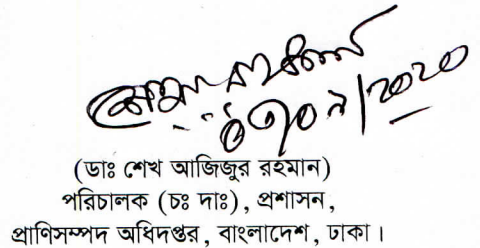 (ডাঃ শেখ আজিজুর রহমান)
পরিচালক (চঃ দাঃ), প্রশাসন,
প্রাণিসম্পদ অধিদপ্তর, বাংলাদেশ, ঢাকা।